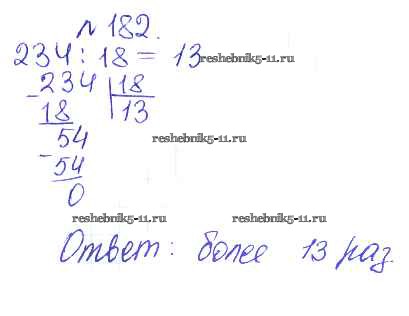 № 182.
234 : 18 = 13 reshebnik5-11.ru
- 234 | 18
18 | 13
reshebnik5-11.ru
54
- 54
0
reshebnik5-11.ru reshebnik5-11.ru
Ответ: более 13 раз.